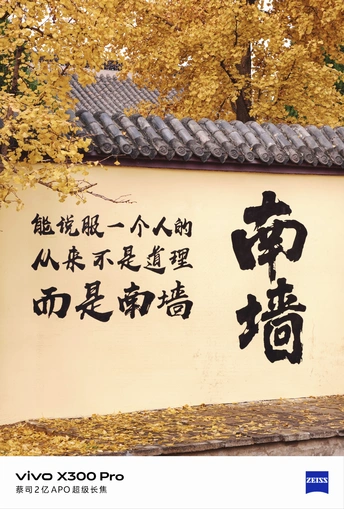 能说服一个人的
从来不是道理
而是南墙
南
墙
vivo X300 Pro
蔡司2亿APO超级长焦
ZEISS